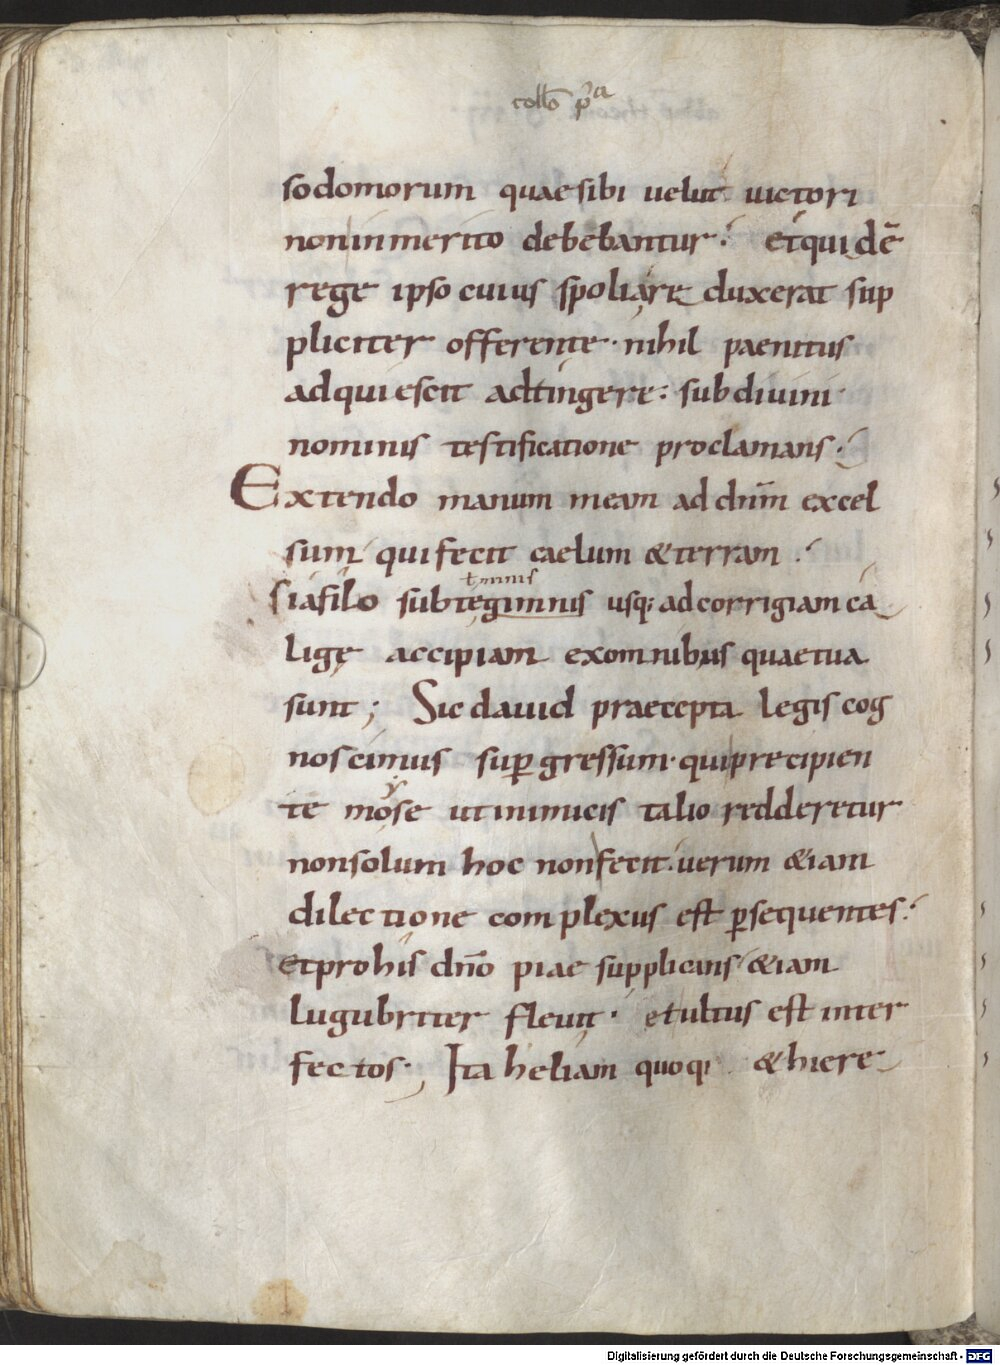 collō pͬa
sodomorum quae sibi uelut uictori
non inmerito debebantur· et quidē
rege ipso cuius spoliare duxerat sup
pliciter offerente· nihil paenitus
adquiescit adtingere: sub diuini
nominis testificatione proclamans·
Extendo manum meam ad dn̄m excel
sum qui fecit caelum & terram ·
t̄minis
si a filo subtegiminis usq; ad corrigiam ca
ligę accipiam ex omnibus quae tua
sunt; Sic dauid praecepta legis cog
noscimus suꝑgressum· qui precipien
te moyse ut inimicis talio redderetur
non solum hoc non fecit· uerum &iam
dilectione complexus est ꝑsequentes·
et pro his dn̄o piae supplicans &iam
lugubriter fleuit· et ultus est inter
fectos· Ita heliam quoq; & hiere
Digitalisierung gefördert durch die Deutsche Forschungsgemeinschaft - DFG